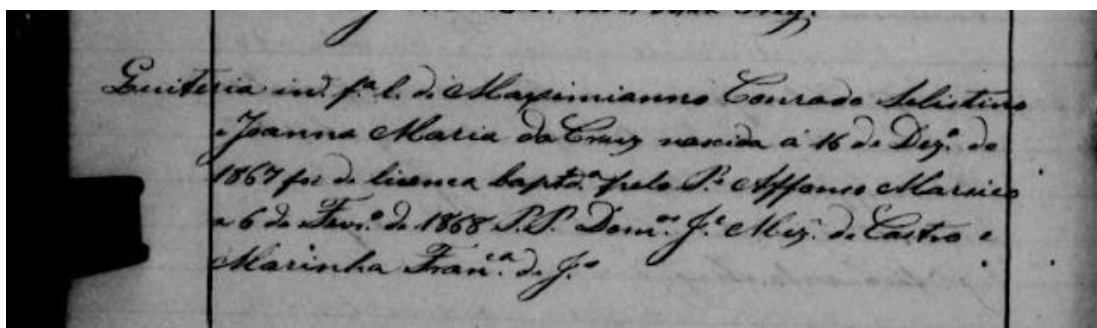 Quiteria ind. f.ª l. di Maximianno Conrado Selistino
e Joanna Maria da Cruz nascida á 16 de Dez.º de
1867 foi de licença baptd.ª pelo P.e Affonso Marsico
a 6 de Fevr.º de 1868 P.P. Dom.os J.e Mez. de Castro e
Marinha Fran.ca de J.s